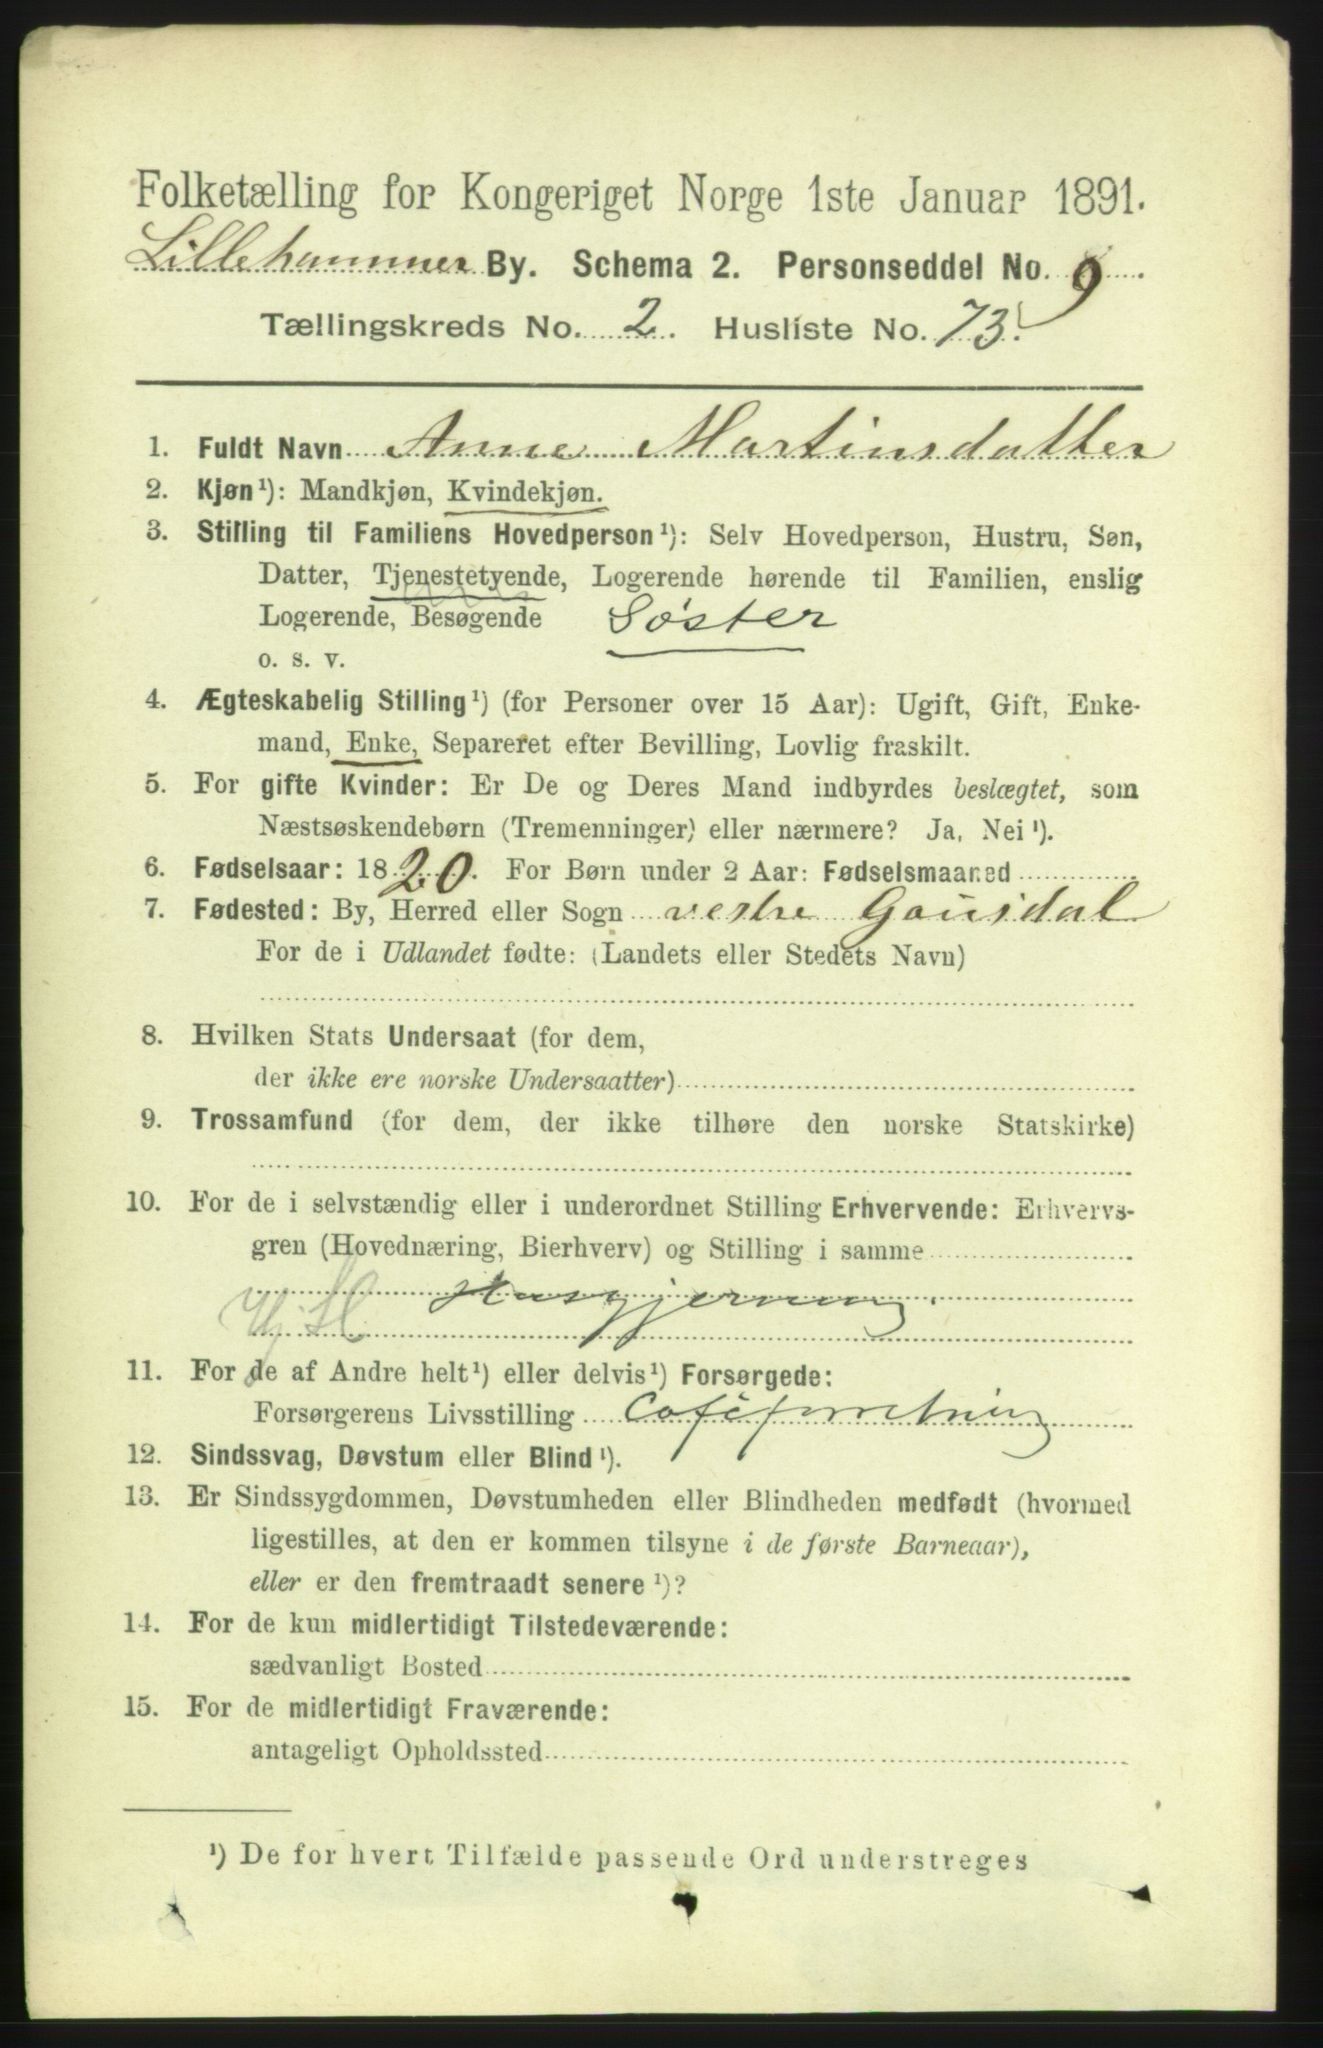 Folketælling for Kongeriget Norge 1ste Januar 1891.
Lillehammer By. Schema 2. Personseddel No. 9.
Tællingskreds No. 2. Husliste No. 73.
1. Fuldt Navn Anne Martinsdatter
2. Kjøn¹): Mandkjøn, Kvindekjøn.
3. Stilling til Familiens Hovedperson¹): Selv Hovedperson, Hustru, Søn,
Datter, Tjenestetyende, Logerende hørende til Familien, enslig
Logerende, Besøgende Søster
o. s. v.
4. Ægteskabelig Stilling¹) (for Personer over 15 Aar): Ugift, Gift, Enke-
mand, Enke, Separeret efter Bevilling, Lovlig fraskilt.
5. For gifte Kvinder: Er De og Deres Mand indbyrdes beslægtet, som
Næstsøskendebørn (Tremenninger) eller nærmere? Ja, Nei¹).
6. Fødselsaar: 1820. For Børn under 2 Aar: Fødselsmaaned
7. Fødested: By, Herred eller Sogn vestre Gausdal
For de i Udlandet fødte: (Landets eller Stedets Navn)
8. Hvilken Stats Undersaat (for dem,
der ikke ere norske Undersaatter)
9. Trossamfund (for dem, der ikke tilhøre den norske Statskirke)
10. For de i selvstændig eller i underordnet Stilling Erhvervende: Erhvervs-
gren (Hovednæring, Bierhverv) og Stilling i samme
Husgjerning.
11. For de af Andre helt¹) eller delvis¹) Forsørgede:
Forsørgerens Livsstilling Caféforretning
12. Sindssvag, Døvstum eller Blind¹).
13. Er Sindssygdommen, Døvstumheden eller Blindheden medfødt (hvormed
ligestilles, at den er kommen tilsyne i de første Barneaar),
eller er den fremtraadt senere¹)?
14. For de kun midlertidigt Tilstedeværende:
sædvanligt Bosted
15. For de midlertidigt Fraværende:
antageligt Opholdssted
¹) De for hvert Tilfælde passende Ord understreges